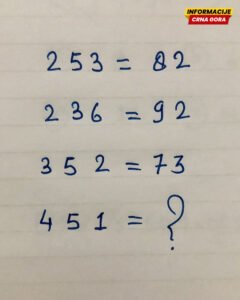 INFORMACIJE
CRNA GORA
253 = 82
236 = 92
352 = 73
451 = ?